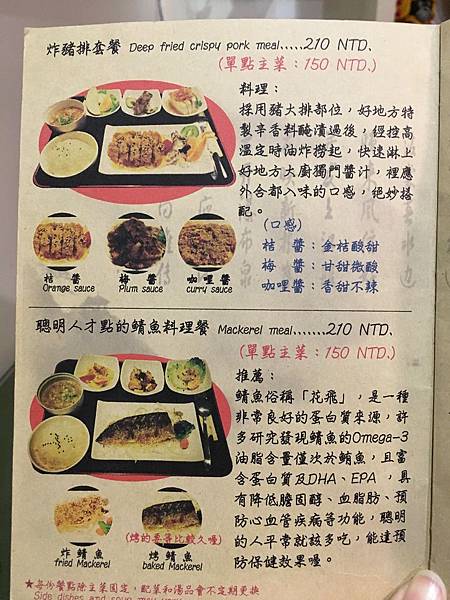 炸豬排套餐 Deep fried crispy pork meal.....210 NTD.
(單點主菜：150 NTD.)
料理：
採用豬大排部位，好地方特
製辛香料醃漬過後，經控高
溫定時油炸撈起，快速淋上
好地方大廚獨門醬汁，裡應
外合都入味的口感，絕妙搭
配。
(口感)
桔 醬：金桔酸甜
梅 醬：甘甜微酸
咖哩醬：香甜不辣
桔 醬
Orange sauce
梅 醬
Plum sauce
咖哩醬
curry sauce
聰明人才點的鯖魚料理餐 Mackerel meal.......210 NTD.
(單點主菜：150 NTD.)
推薦：
鯖魚俗稱「花飛」，是一種
非常良好的蛋白質來源，許
多研究發現鯖魚的Omega-3
油脂含量僅次於鮪魚，且富
含蛋白質及DHA、EPA ，具
有降低膽固醇、血脂肪、預
防心血管疾病等功能，聰明
的人平常就該多吃，能達預
防保健效果喔。
(烤的要等比較久喔)
炸 鯖 魚
fried Mackerel
烤 鯖 魚
baked Mackerel
★每份餐點除主菜固定，配菜和湯品會不定期更換
Side dishes and soup may